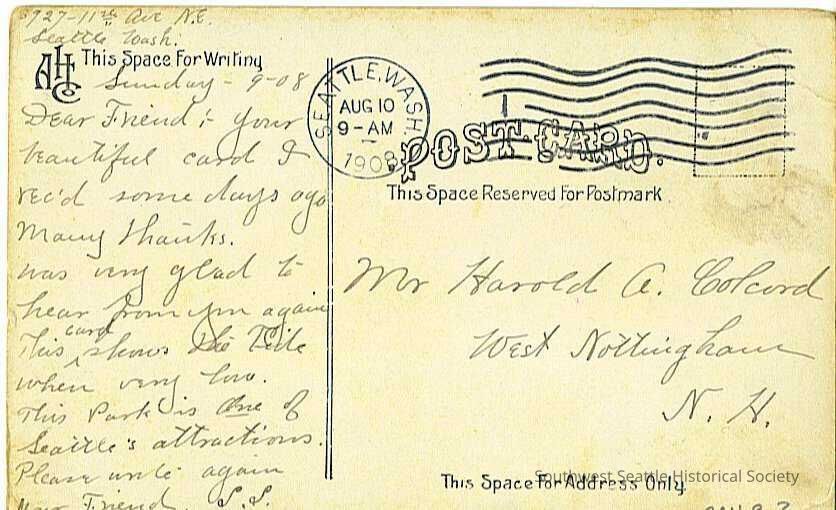 5927-11th Ave N.E.
Seattle Wash.
AHC
This Space For Writing
Sunday - 9-08
Dear Friend :- your
beautiful card I
rec'd some days ago
Many thanks.
was very glad to
hear from you again
This card shows the Tide
when very low.
This Park is One of
Seattle's attractions.
Please write again
Your Friend, S.S.
SEATTLE, WASH.
AUG 10
9-AM
1908
POST CARD.
This Space Reserved For Postmark
Mr Harold A. Colcord
West Nottingham
N. H.
This Space For Address Only.
Southwest Seattle Historical Society